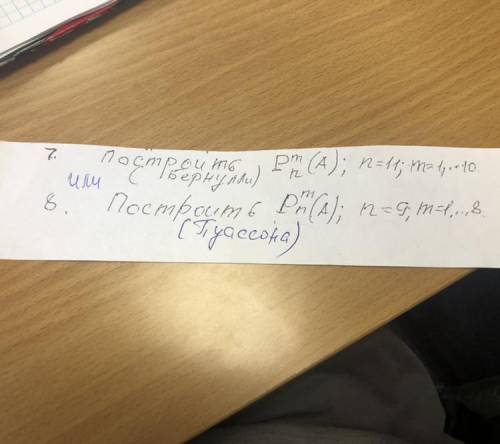 7. Построить P_n^m(A); n=11; m=1,..10
(Бернулли)
или
8. Построить P_n^m(A); n=9, m=1,..,8
(Пуассона)